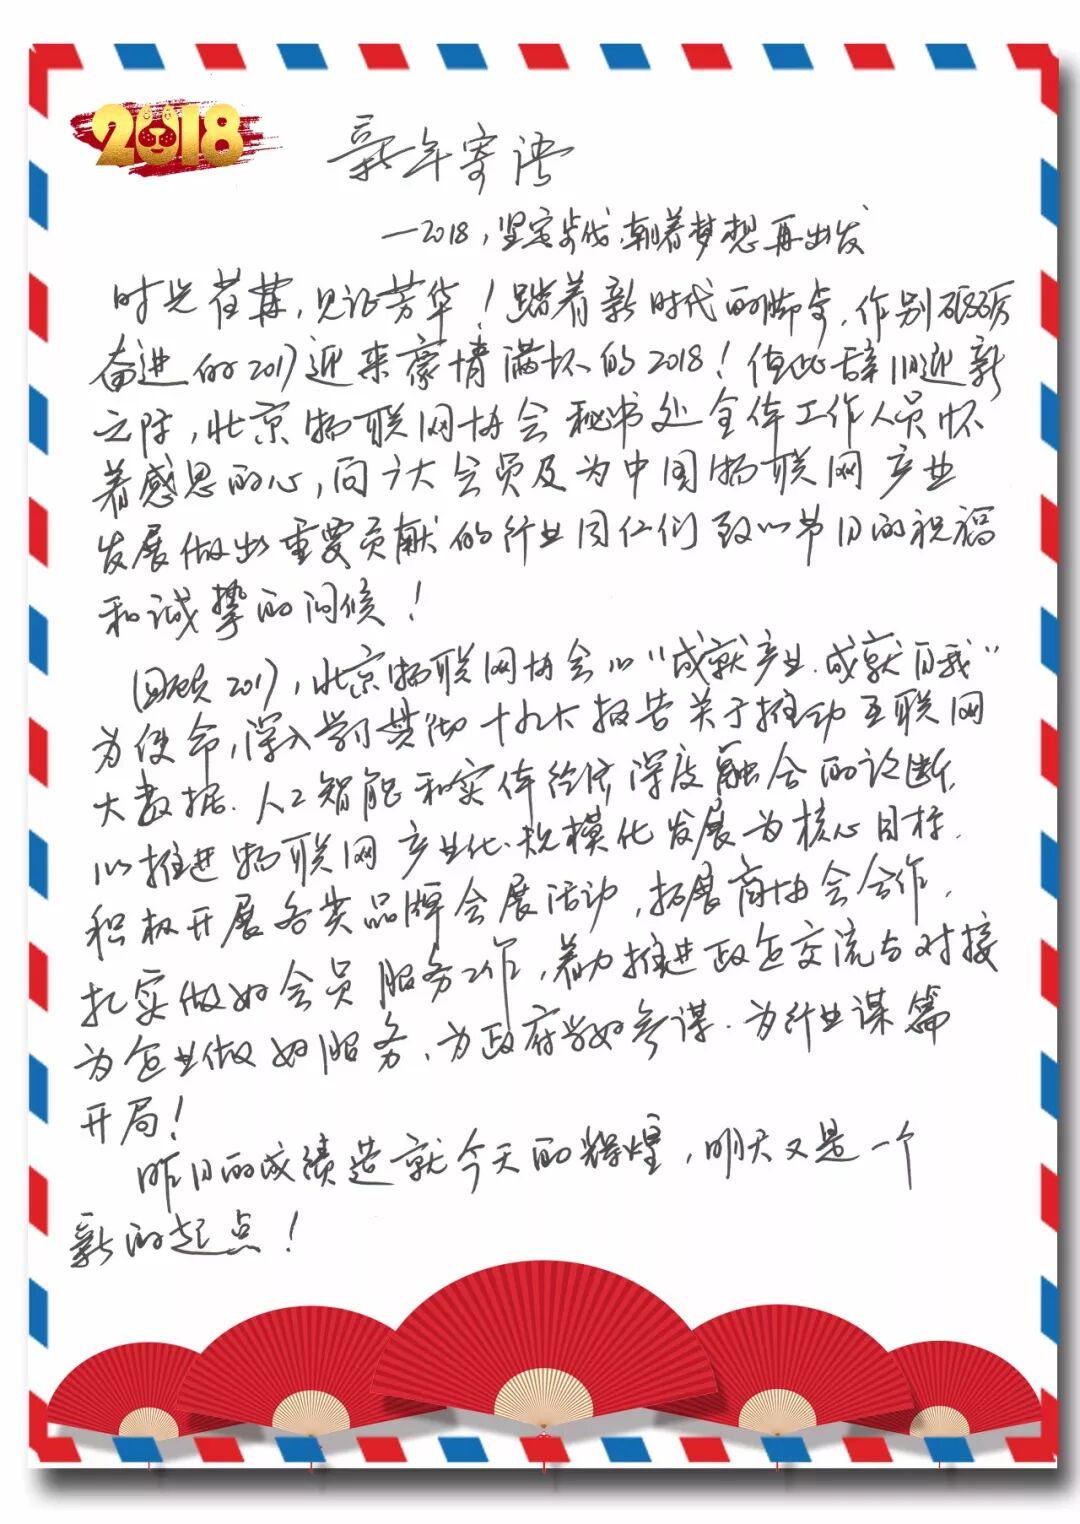 2018
新年寄语
—2018，坚定步伐，朝着梦想再出发
时光荏苒，见证芳华！踏着新时代的脚步，作别砥砺
奋进的2017迎来豪情满怀的2018！值此辞旧迎新
之际，北京物联网协会秘书处全体工作人员怀
着感恩的心，向广大会员及为中国物联网产业
发展做出重要贡献的行业同仁们致以节日的祝福
和诚挚的问候！
回顾2017，北京物联网协会以“成就产业、成就自我”
为使命，深入学习贯彻十九大报告关于推动互联网
大数据、人工智能和实体经济深度融合的论断，
以推进物联网产业化、规模化发展为核心目标，
积极开展各类品牌会展活动，拓展商协会合作，
扎实做好会员服务工作，着力推进政企交流与对接
为企业做好服务、为政府当好参谋、为行业谋篇
开局！
昨日的成绩造就今天的辉煌，明天又是一个
新的起点！